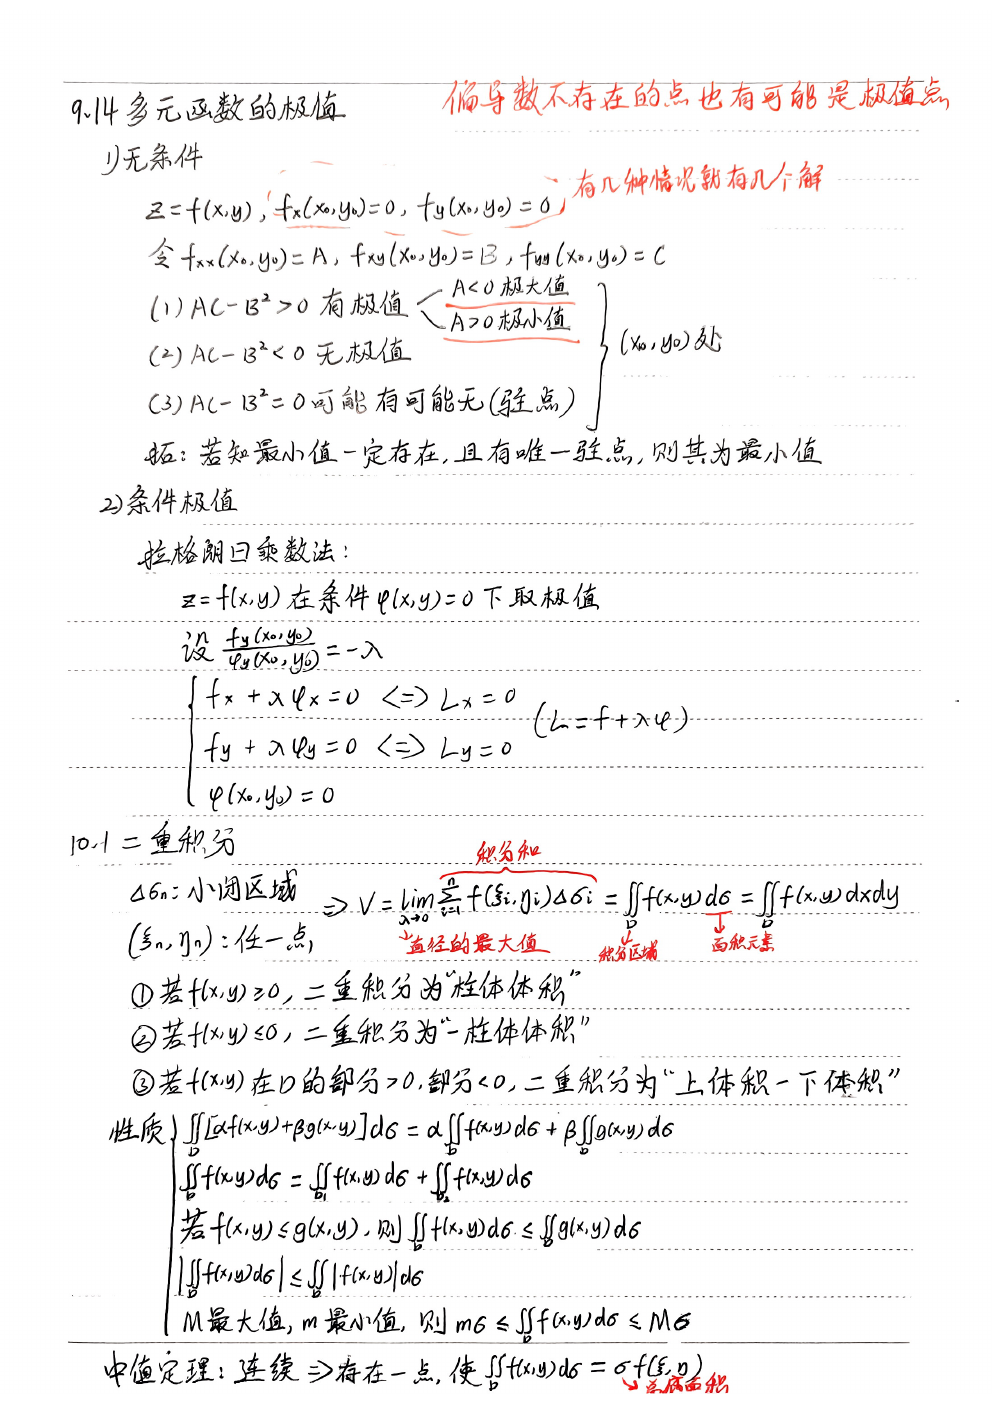 9.14 多元函数的极值 偏导数不存在的点也有可能是极值点
1)无条件
z=f(x,y), fx(x₀,y₀)=0, fy(x₀,y₀)=0, 有几种情况就有几个解
令 fxx(x₀,y₀)=A, fxy(x₀,y₀)=B, fyy(x₀,y₀)=C
(1) AC-B²>0 有极值 A<0 极大值
A>0 极小值
(2) AC-B²<0 无极值
(x₀,y₀)处
(3) AC-B²=0 可能有可能无(驻点)
拓: 若知最小值一定存在, 且有唯一驻点, 则其为最小值
2)条件极值
拉格朗日乘数法:
z=f(x,y) 在条件 φ(x,y)=0 下取极值
设 fy(x₀,y₀)/φy(x₀,y₀) = -λ
fx + λφx = 0 <=> Lx = 0
(L=f+λφ)
fy + λφy = 0 <=> Ly = 0
φ(x₀,y₀) = 0
10.1 二重积分
积分和
Δσn: 小闭区域 => V = lim λ→0 Σ i=1 n f(ξi,ηi)Δσi = ∬D f(x,y)dσ = ∬D f(x,y)dxdy
(ξn,ηn): 任一点, 直径的最大值 积分区域 面积元素
①若 f(x,y)≥0, 二重积分为“柱体体积”
②若 f(x,y)≤0, 二重积分为“-柱体体积”
③若 f(x,y) 在D的部分>0, 部分<0, 二重积分为“上体积-下体积”
性质 ∬D [αf(x,y)+βg(x,y)]dσ = α∬D f(x,y)dσ + β∬D g(x,y)dσ
∬D f(x,y)dσ = ∬D₁ f(x,y)dσ + ∬D₂ f(x,y)dσ
若 f(x,y)≤g(x,y), 则 ∬D f(x,y)dσ ≤ ∬D g(x,y)dσ
|∬D f(x,y)dσ| ≤ ∬D |f(x,y)|dσ
M最大值, m最小值, 则 mσ ≤ ∬D f(x,y)dσ ≤ Mσ
中值定理: 连续 => 存在一点, 使 ∬D f(x,y)dσ = σf(ξ,η)
总底面积